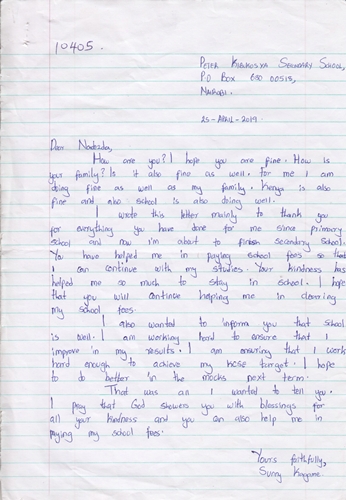 10405.
PETER KIBUKOSYA SECONDARY SCHOOL,
P.O BOX 600 00515,
NAIROBI.
25-APRIL-2019.
Dear
How are you? I hope you are fine. How is
your family? Is it also fine as well. for me I am
doing fine as well as my family. Kenya is also
fine and also school is also doing well.
I wrote this letter mainly to thank you
for everything you have done for me since primary
school and now i'm about to finish secondary school.
You have helped me in paying school fees so that
I can continue with my studies. Your kindness has
helped me so much to stay in school. I hope
that you will continue helping me in clearing
my school fees.
I also wanted to inform you that school
is well. I am working hard to ensure that I
improve in my results. I am ensuring that I work
hard enough to achieve my kcse target. I hope
to do better in the mocks next term.
That was all I wanted to tell you.
I pray that God showers you with blessings for
all your kindness and you can also help me in
paying my school fees.
Yours faithfully,
Sunny